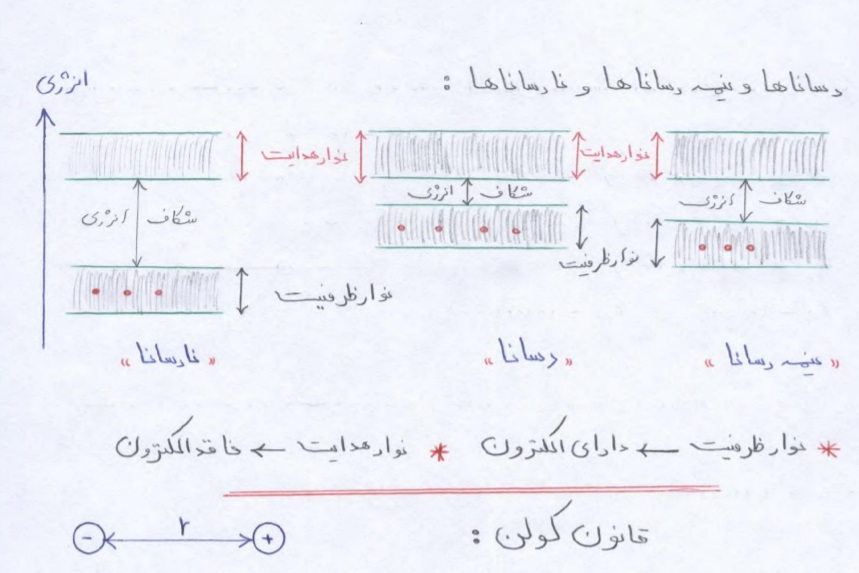 رساناها و نیمه رساناها و نارساناها :
انرژی
نوار هدایت
نوار هدایت
شکاف انرژی
شکاف انرژی
شکاف انرژی
نوار ظرفیت
نوار ظرفیت
« نیمه رسانا »
« رسانا »
« نارسانا »
* نوار ظرفیت ← دارای الکترون * نوار هدایت ← فاقد الکترون
قانون کولن :
- r +